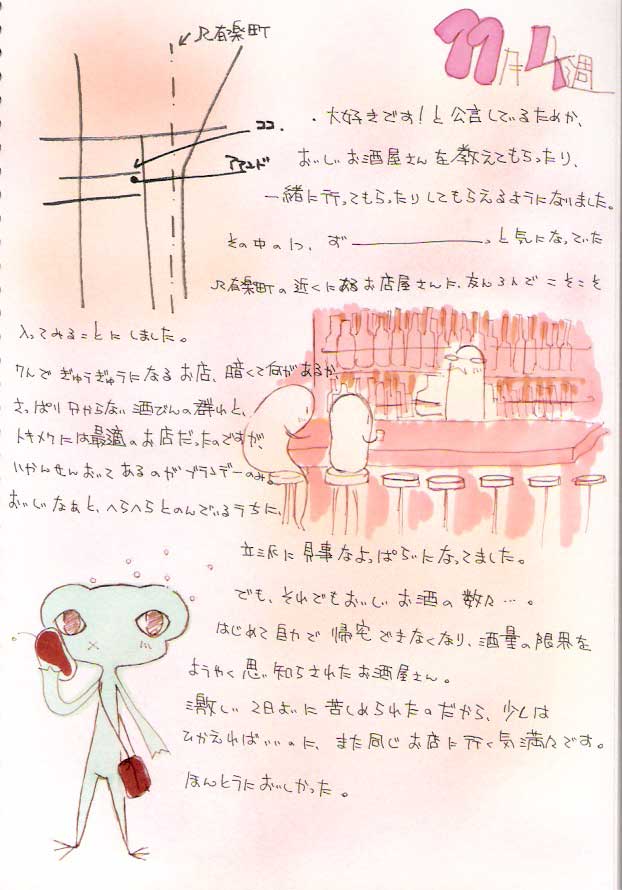 JR有楽町
11月4週
ココ.
アマンド
・大好きです!と公言しているためか、
おいしいお酒屋さんを教えてもらったり、
一緒に行ってもらったりしてもらえるようになりました。
その中の1つ、ず――――っと気になっていた
JR有楽町の近くにあるお店屋さんに、友人3人でこそこそ
入ってみることにしました。
7人でぎゅうぎゅうになるお店、暗くて何があるか、
さっぱり分からない酒びんの群れと、
トキメクには最適のお店だったのですが、
いかんせんおいてあるのがブランデーのみ。
おいしいなあと、へらへらとのんでいるうちに、
立派に見事なよっぱらいになってました。
でも、それでもおいしいお酒の数々…。
はじめて自力で帰宅できなくなり、酒量の限界を
ようやく思い知らされたお酒屋さん。
激しい2日よいに苦しめられたのだから、少しは
ひかえればいいのに、また同じお店に行く気満々です。
ほんとうにおいしかった。